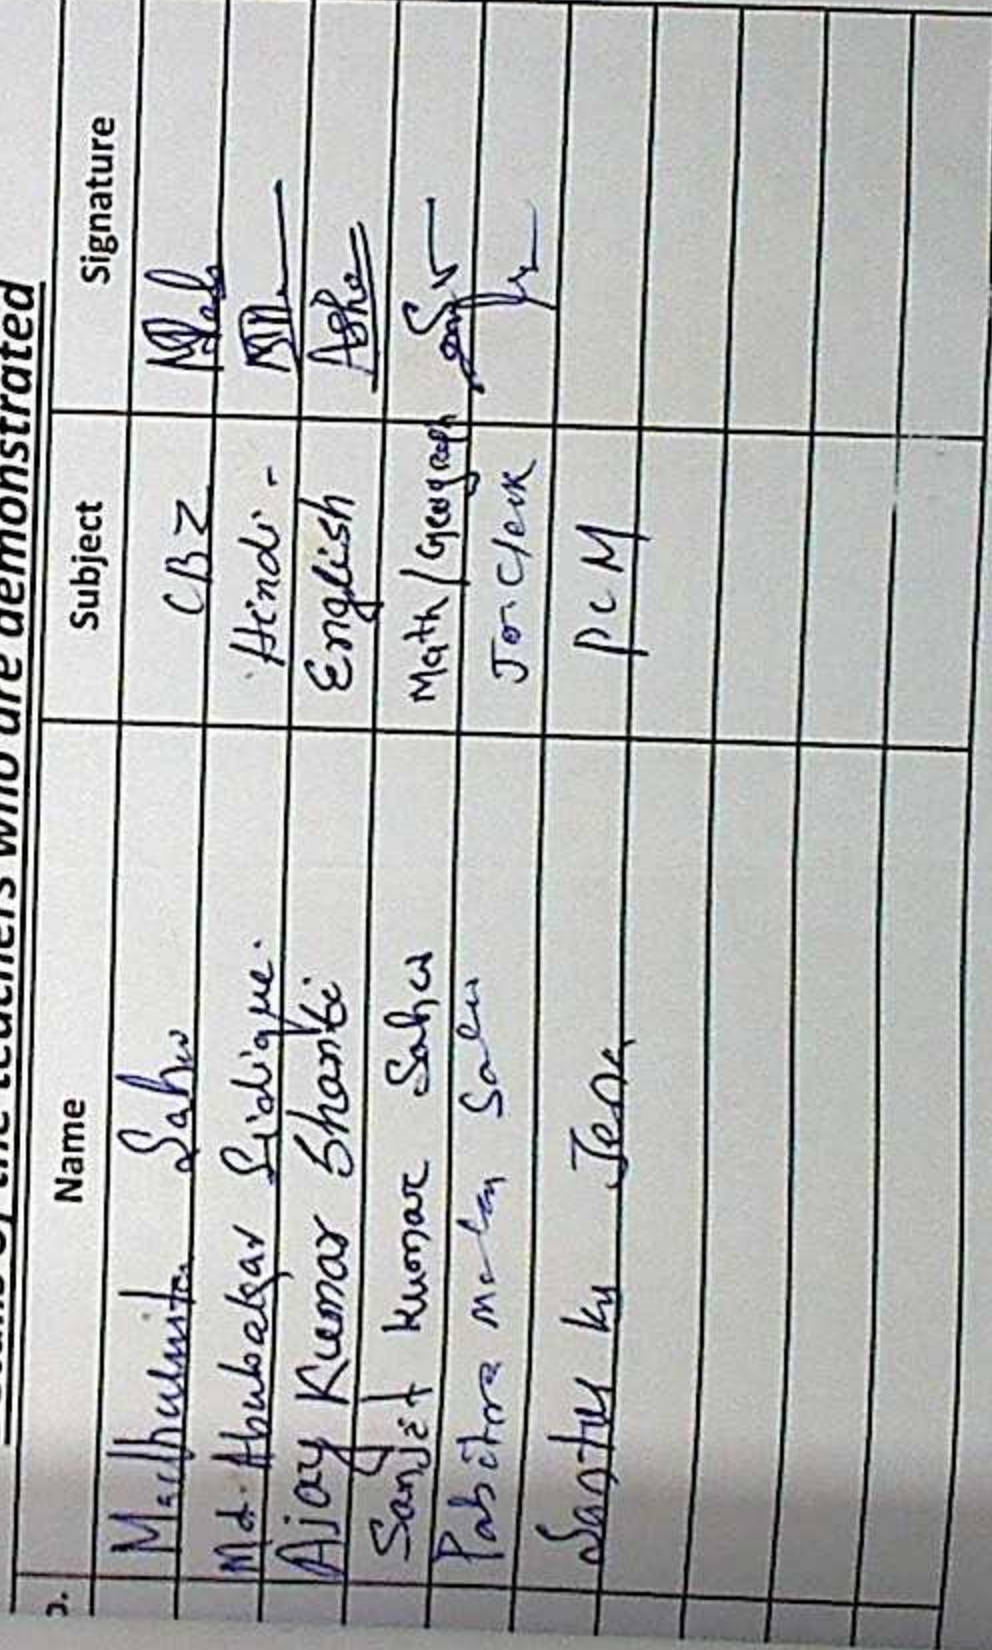 of the teachers who are demonstrated
Name Subject Signature
Madhusmita Sahu CBZ
Md. Abubakar Sidique. Hindi -
Ajay Kumar Bhanti English
Sanjet kumar Sahu Math/Geograph
Pabitra Mohan Sahu Jor Clerk
Santu Ku Jena PCM